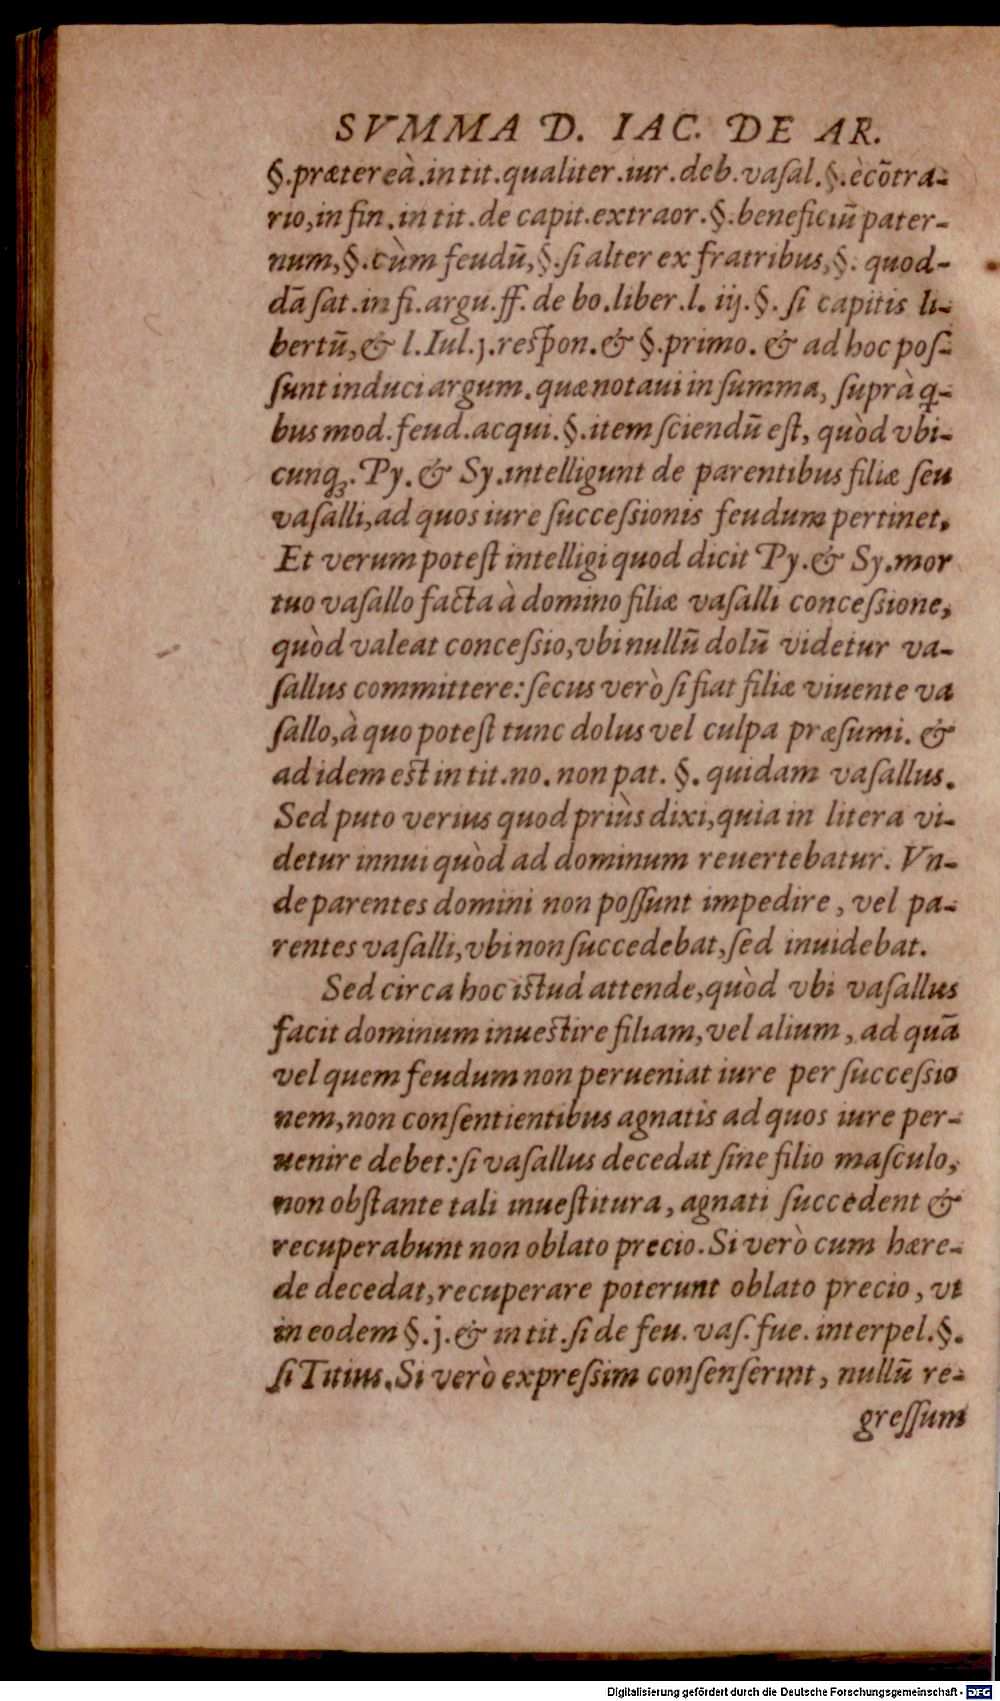 SVMMA D. IAC. DE AR.
§.prætereà.in tit.qualiter.iur.deb.vaſal.§.ècōtra-
rio,in fin.in tit.de capit.extraor.§.beneficiū pater-
num,§.cùm feudū,§.ſi alter ex fratribus,§. quod-
dā ſat.in fi.argu.ff.de bo.liber.l. iij.§. ſi capitis li-
bertū,& l.Iul.j.reſpon.& §.primo. & ad hoc poſ-
ſunt induci argum.quæ notaui in ſumma, ſuprà ꝗ-
bus mod.feud.acqui.§.item ſciendū eſt, quòd vbi-
cunqꝫ.Py.& Sy.intelligunt de parentibus filiæ ſeu
vaſalli,ad quos iure ſucceſsionis feudum pertinet.
Et verum poteſt intelligi quod dicit Py.& Sy.mor
tuo vaſallo facta à domino filiæ vaſalli conceſsione,
quòd valeat conceſsio,vbi nullū dolū videtur va-
ſallus committere:ſecus verò ſi fiat filiæ viuente va
ſallo,à quo poteſt tunc dolus vel culpa præſumi. &
ad idem eſt in tit.no.non pat. §. quidam vaſallus.
Sed puto verius quod priùs dixi,quia in litera vi-
detur innui quòd ad dominum reuertebatur. Vn-
de parentes domini non poſſunt impedire, vel pa-
rentes vaſalli,vbi non ſuccedebat,ſed inuidebat.
Sed circa hoc iſtud attende,quòd vbi vaſallus
facit dominum inueſtire filiam,vel alium, ad quā
vel quem feudum non perueniat iure per ſucceſsio
nem,non conſentientibus agnatis ad quos iure per-
uenire debet:ſi vaſallus decedat ſine filio maſculo,
non obſtante tali inueſtitura, agnati ſuccedent &
recuperabunt non oblato precio.Si verò cum hære-
de decedat,recuperare poterunt oblato precio, vt
in eodem §.j.& in tit.ſi de feu.vaſ.fue.interpel.§.
ſi Titius.Si verò expreſsim conſenſerint, nullū re-
greſſum
Digitalisierung gefördert durch die Deutsche Forschungsgemeinschaft - DFG